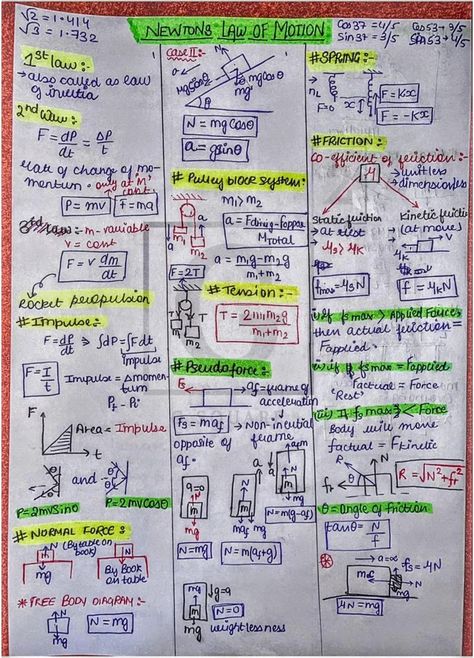 √2 = 1.414
√3 = 1.732
NEWTONS LAW OF MOTION
Cos37 = 4/5
Sin37 = 3/5
Cos53 = 3/5
Sin53 = 4/5
1st law:-
→ also called as law
of inertia
2nd law:-
F = dP/dt = ΔP/t
Rate of change of mo-
mentum
→ only at m
const.
P = mv
F = ma
3rd law:-
m - variable
v = const
F = v dm/dt
Rocket propulsion
# Impulse:-
F = dP/dt ⇒ ∫dP = ∫Fdt
impulse
F = I/t
Impulse = Δmomen-
tum
Pf - Pi
F
Area = Impulse
t
and
P = 2mvsinθ
P = 2mvcosθ
# NORMAL FORCE:
N (By table on
book)
N
mg
By Book
on table
* FREE BODY DIAGRAM:-
N
m
mg
N = mg
Case II:-
N
a
mgsinθ
mgcosθ
mg
θ
N = mgcosθ
a = gsinθ
# Pulley block system:-
m1 > m2
a
a
m1
m2
a = Fdriving - Foppose
Mtotal
a = m1g - m2g
m1 + m2
F = 2T
# Tension:-
T
T
m1
m2
T = 2m1m2g
m1 + m2
# Pseudoforce:-
Fs
af = frame of
acceleration
Fs = maf
→ Non-inertial
frame
opposite of
af.
a = 0
N
m
mg
N = mg
a
N
m
maf
mg
N = m(af + g)
a
N
m
mg
N = m(g - a)
↓g = a
m
mg
N = 0
weightlessness
# SPRING:-
F = 0
x
F = Kx
F = -Kx
# FRICTION:-
Co-efficient of friction:-
μ
→ unitless
→ dimensionless
Static friction
→ at rest
→ μs > μk
fmax = μsN
Kinetic friction
(at move)
μk
f = μkN
i) If fs max > Applied Force
then actual friction =
Fapplied.
ii) if fs max = fapplied
factual = Force
'Rest'
iii) If fs max < Force
Body will move
factual = Fkinetic
R
N
θ
fr
R = √N² + fr²
θ = Angle of friction
tanθ = N/f
→ a = a
fs = μN
N
mg
μN = mg